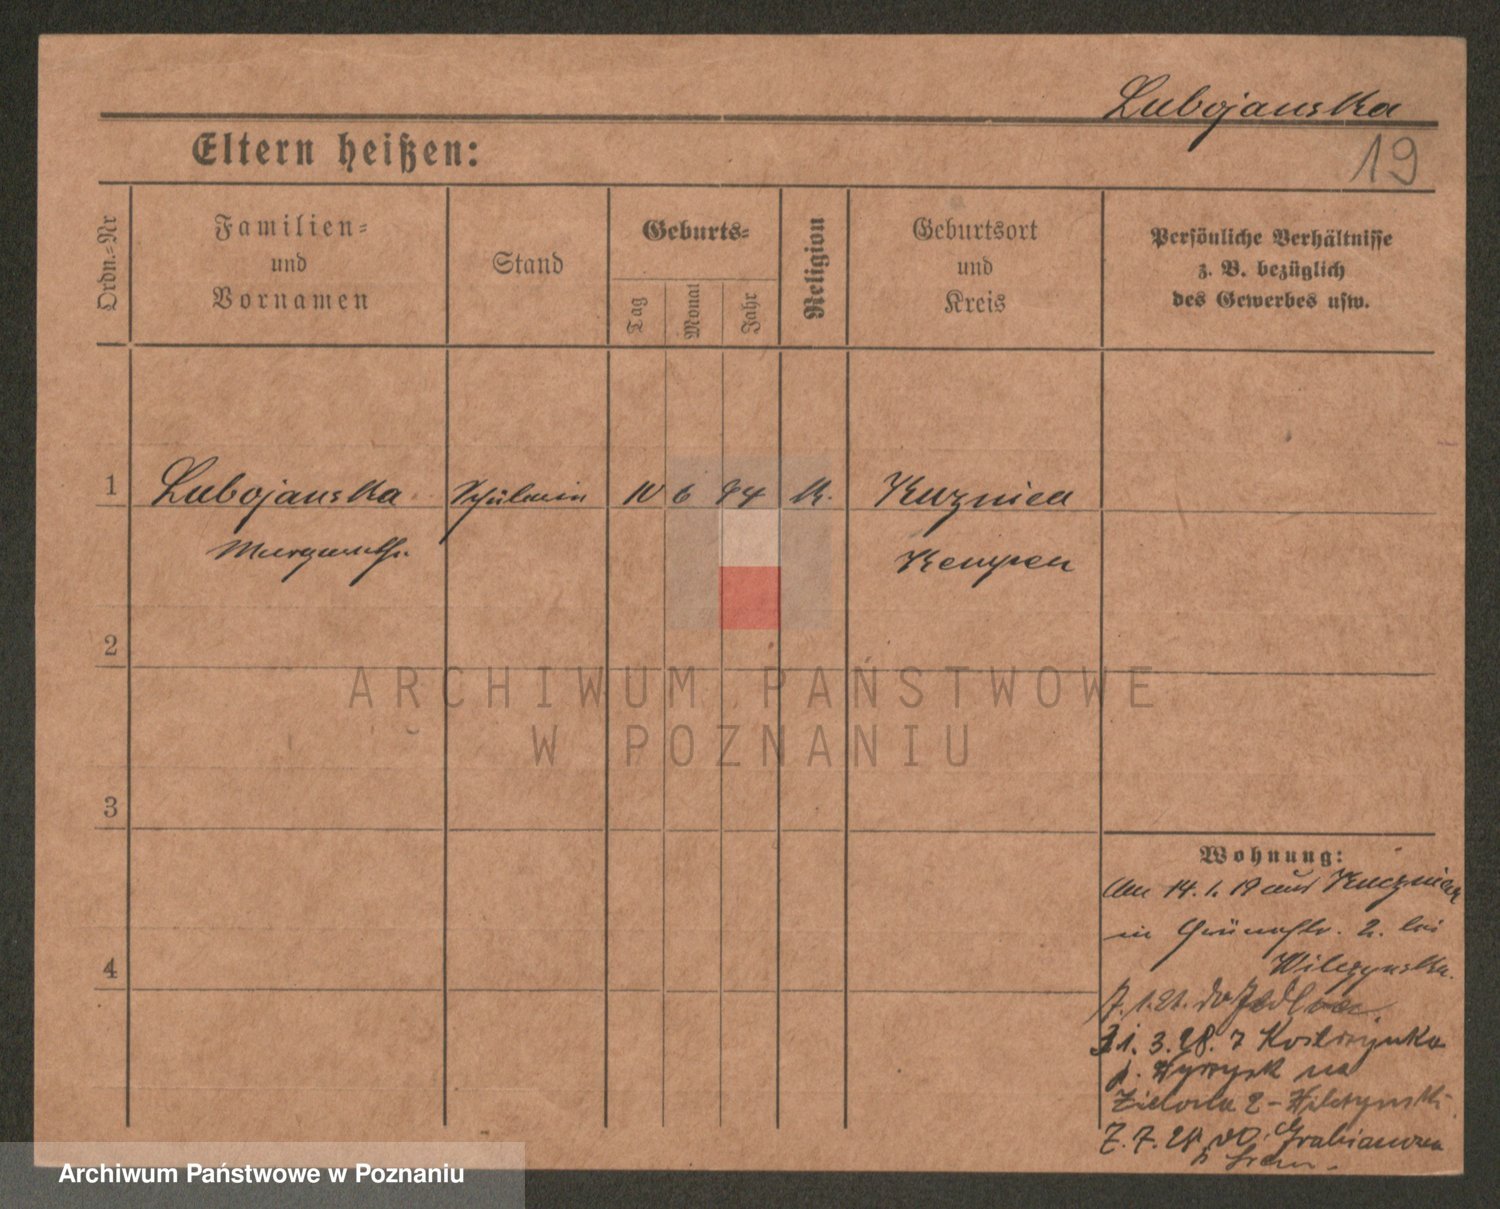 Lubojanska
19
Eltern heißen:
Ordn.=Nr
Familien=
und
Vornamen
Stand
Geburts=
Tag
Monat
Jahr
Religion
Geburtsort
und
Kreis
Persönliche Verhältnisse
z. B. bezüglich
des Gewerbes usw.
1 Lubojanska Schülerin 10 6 K. Kuznica
Kempen
2
3
4
Wohnung:
Am 14. 1. 19 aus
in Grünestr. 2. bei
Wilczynska.
31. 3. 28. z Kostrzynka
p. Wyrzysk na
Zielona 2 - Wilczynski
7. 7. 28. do Grabianowa
p. Śrem.
ARCHIWUM PAŃSTWOWE
W POZNANIU
Archiwum Państwowe w Poznaniu